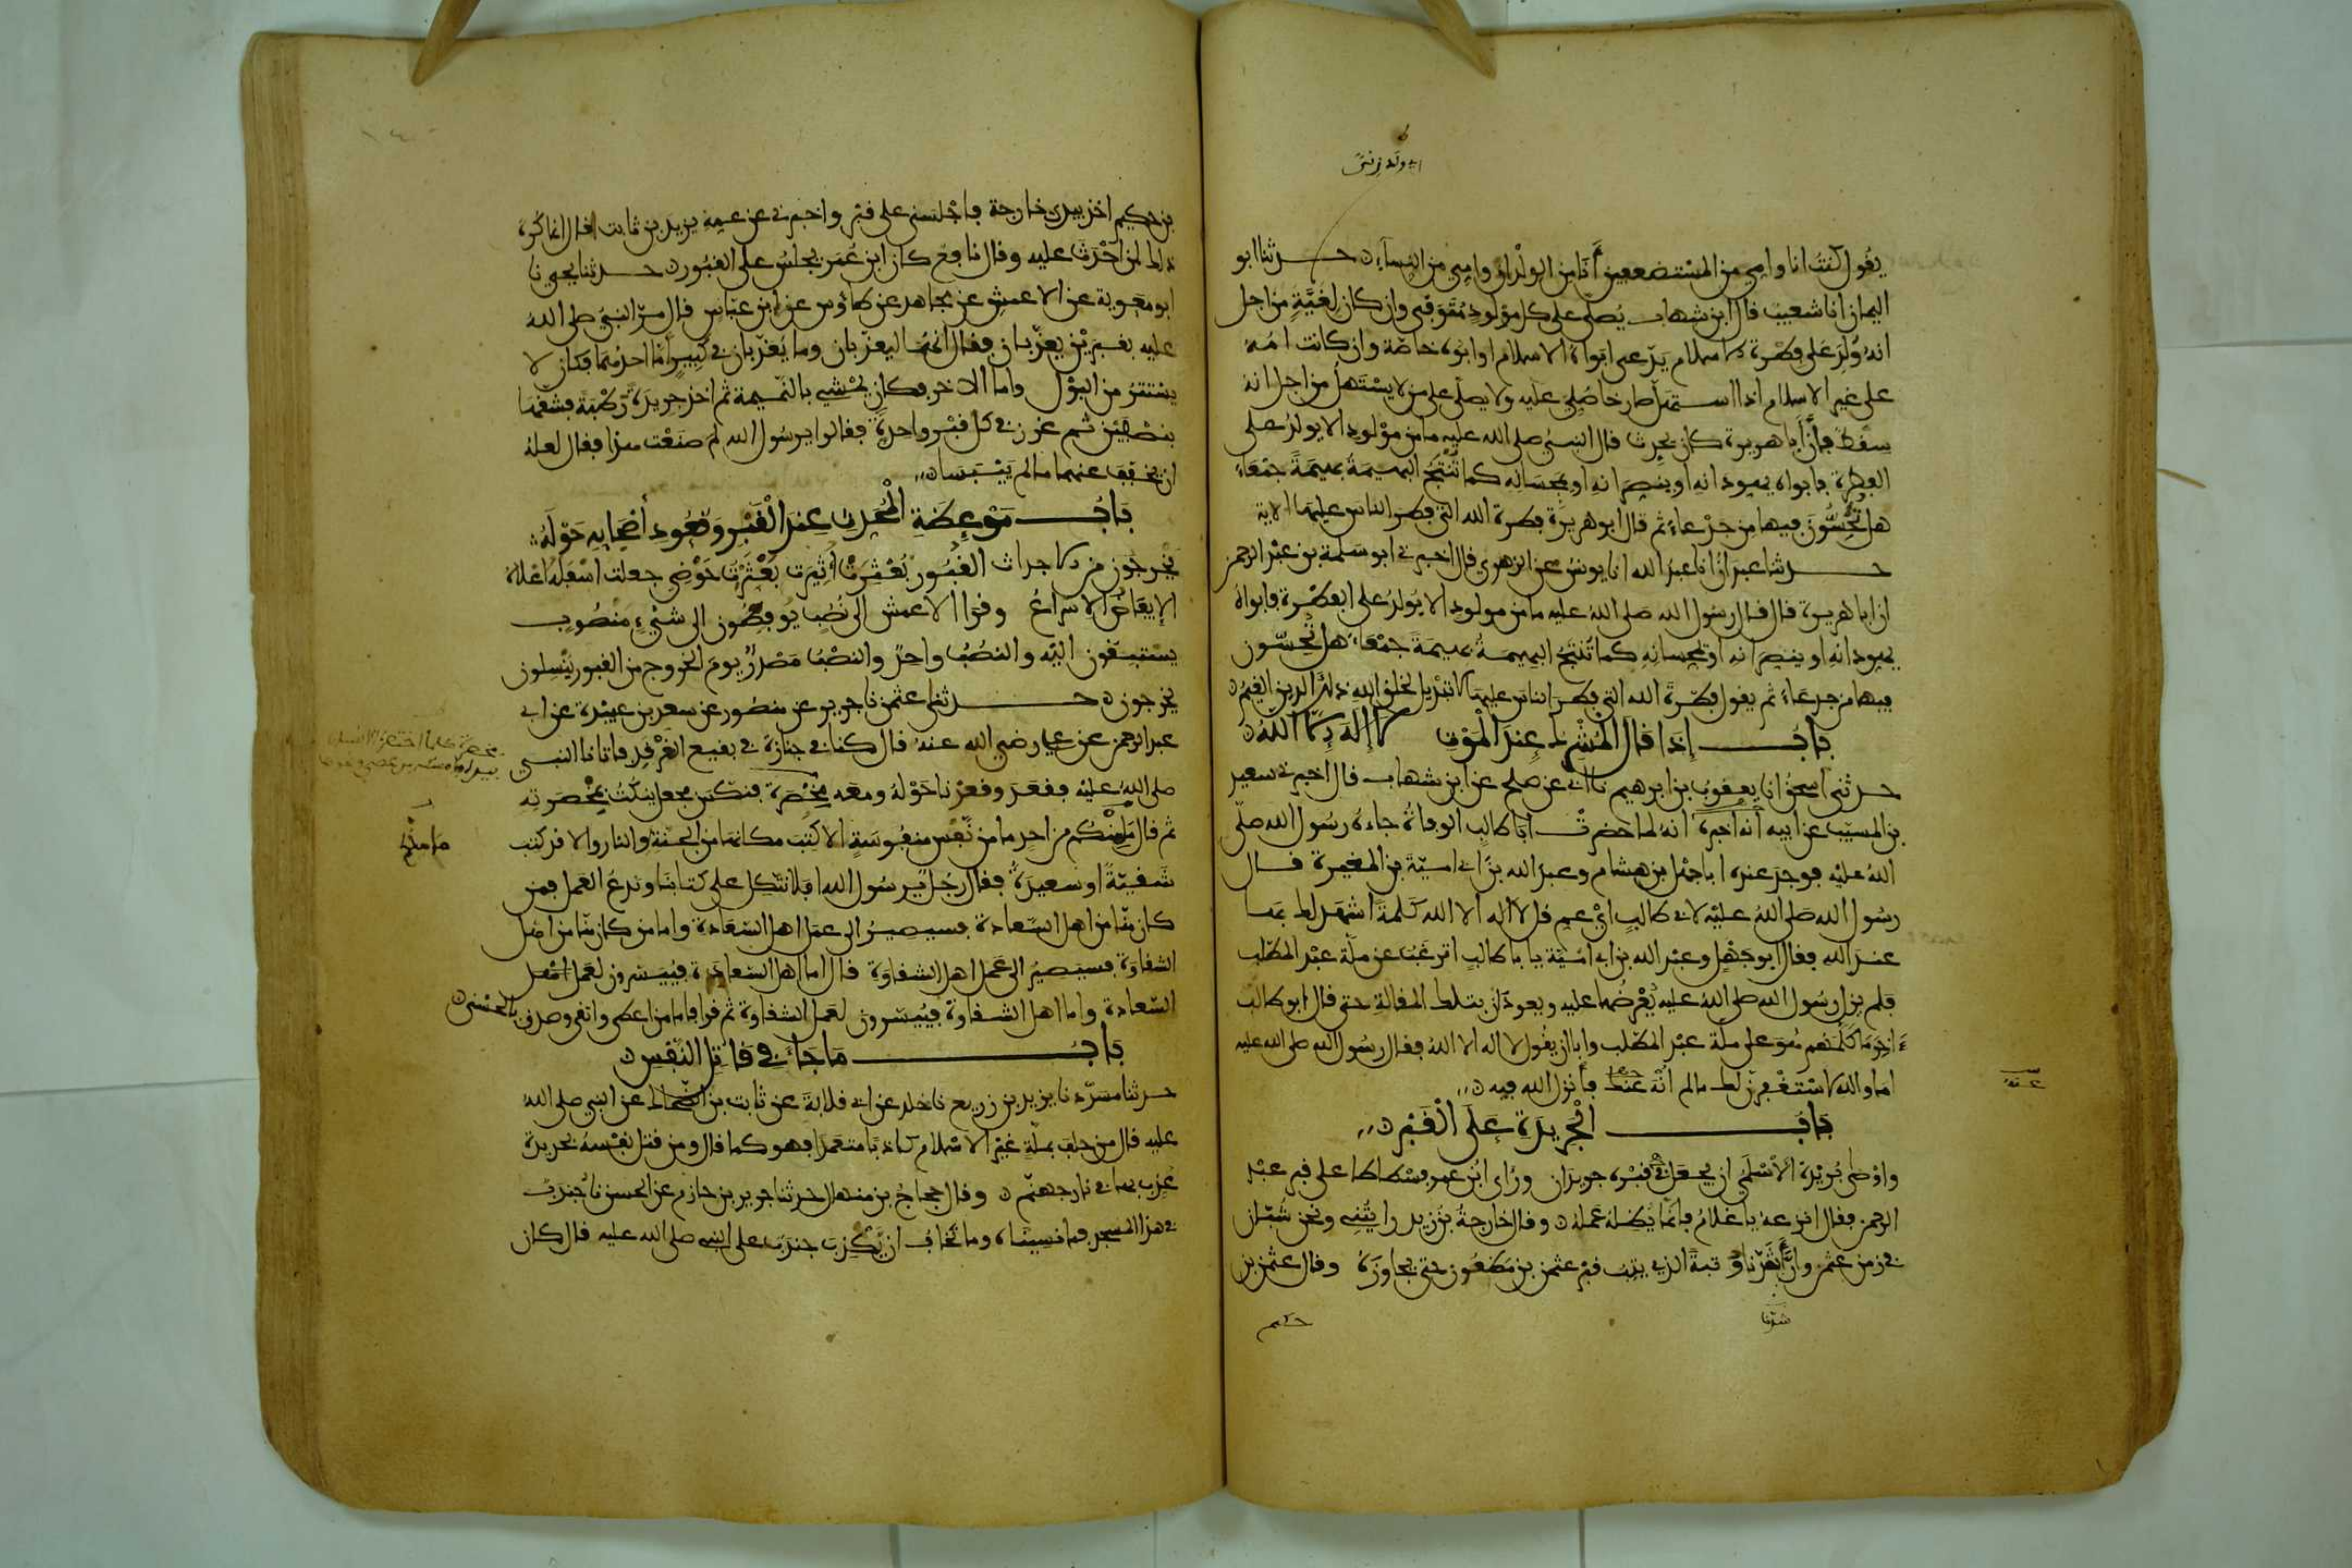 يقول كنت انا وامي من المستضعفين أنا من الولدان وامي من النساء حدثنا ابو
اليمان انا شعيب قال ابن شهاب يُصلّى على كل مولود مُتوفى وان كان لِغَيَّةٍ من اجل
انه وُلِد على فطرة الاسلام يدّعي ابواه الاسلام او ابوه خاصّة وان كانت امه
على غير الاسلام اذا استهلّ صارخا صُلِّي عليه ولا يصلّى على من لا يستهلّ من اجل انه
سقط فإنّ أبا هريرة كان يحدث قال النبي صلى الله عليه ما من مولود الا يولد على
الفطرة فابواه يهودانه او ينصرانه او يمجسانه كما تُنتَج البهيمة بهيمةً جمعاء
هل تُحِسُّون فيها من جدعاء ثم قال ابو هريرة فطرة الله التي فطر الناس عليها الاية
حدثنا عبدان انا عبد الله انا يونس عن الزهري قال اخبرني ابو سلمة بن عبد الرحمن
ان ابا هريرة قال قال رسول الله صلى الله عليه ما من مولود الا يُولد على الفطرة فابواه
يهودانه او ينصرانه او يمجسانه كما تُنتَج البهيمة بهيمة جمعاء هل تُحسّون
فيها من جدعاء ثم يقول فطرة الله التي فطر الناس عليها لا تبديل لخلق الله ذلك الدين القيم
باب إذا قال المشرك عند الموت لا إله إلا الله
حدثني اسحق انا يعقوب بن ابرهيم نا ابي عن صلح عن ابن شهاب قال اخبرني سعيد
بن المسيّب عن ابيه أنه اخبره انه لما حضرت ابا طالب الوفاة جاءه رسول الله صلّى
الله عليه فوجد عنده ابا جهل بن هشام وعبد الله بن ابي اميّة بن المغيرة قال
رسول الله صلى الله عليه لابي طالب اي عم قل لا اله الا الله كلمةً اشهد لك بها
عند الله فقال ابو جهل وعبد الله بن ابي اميّة يا با طالب اترغب عن ملّة عبد المطّلب
فلم يزل رسول الله صلى الله عليه يعرضها عليه ويعودان بتلك المقالة حتى قال ابو طالب
ءاخر ما كلّمهم هو على ملّة عبد المطّلب وابا ان يقول لا اله الا الله فقال رسول الله صلى الله عليه
اما والله لاستغفرنّ لك ما لم أنه عنك فأنزل الله فيه
باب الجريدة على القبر
واوصى بُريدة الاسلمي ان يجعل في قبره جريدان ورأى ابن عمر فسطاطا على قبر عبد
الرحمن فقال انزعه يا غلام فانما يُظله عمله وقال خارجة بن زيد رايتُني ونحن شُبّان
في زمن عثمن وانّ أشدّنا وثبةً الذي يثب قبر عثمن بن مظعون حتى يجاوزه وقال عثمن بن
حكيم
بن حكيم اخذ بيدي خارجة فاجلسني على قبر واخبرني عن عمه يزيد بن ثابت قال انما كُره
ذلك لمن احدث عليه وقال نافع كان ابن عمر يجلس على القبور حدثنا يحيى نا
ابو معوية عن الاعمش عن مجاهد عن طاوس عن ابن عباس قال مرّ النبي صلى الله
عليه بقبرين يعذّبان فقال انهما ليعذّبان وما يُعذّبان في كبير أما احدهما فكان لا
يستتر من البول واما الاخر فكان يمشي بالنميمة ثم اخذ جريدة رطبة فشقها
بنصفين ثم غرز في كل قبر واحدةً فقالوا يرسول الله لم صنعت هذا فقال لعله
ان يخفف عنهما ما لم ييبسا
باب موعظة المحدث عند القبر وقعود أصحابه حوله
يخرجون من الاجداث القبور بُعثرت اُثيرت بعثرت حوضي جعلت اسفله اعلاه
الإيفاض الاسراع وقرا الاعمش الى نُصُب يوفضون الى شيء منصوب
يستبقون اليه والنُّصب واحدٌ والنصب مصدرٌ يوم الخروج من القبور ينسلون
يخرجون حدثنا عثمن نا جرير عن منصور عن سعد بن عبيدة عن ابي
عبد الرحمن عن علي رضي الله عنه قال كنا في جنازة في بقيع الغرقد فاتانا النبي
صلى الله عليه فقعد وقعدنا حوله ومعه مخصرة فنكس فجعل ينكت بمخصرته
ثم قال ما منكم من احد ما من نفس منفوسة الا كتب مكانها من الجنة والنار والا قد كتبت
شقيّةً او سعيدةً فقال رجل يرسول الله افلا نتّكل على كتابنا وندع العمل فمن
كان منّا من اهل السعادة فسيصير الى عمل اهل السّعادة واما من كان منا من اهل
الشقاوة فسيصير الى عمل اهل الشقاوة قال اما اهل السّعادة فيُيسّرون لعمل اهل
السّعادة واما اهل الشقاوة فيُيسّرون لعمل الشقاوة ثم قرا فاما من اعطى واتقى وصدق بالحسنى
باب ما جاء في قاتل النفس
حدثنا مسدّد نا يزيد بن زريع نا خلد عن ابي قلابة عن ثابت بن الضحاك عن النبي صلى الله
عليه قال من حلف بملّة غير الاسلام كاذبا متعمدا فهو كما قال ومن قتل نفسه بحديدة
عُذّب بها في نار جهنّم وقال حجاج بن منهال حدثنا جرير بن حازم عن الحسن نا جُندب
في هذا المسجد فما نسيناه وما نخاف ان يكذب جندب على النبي صلى الله عليه قال كان